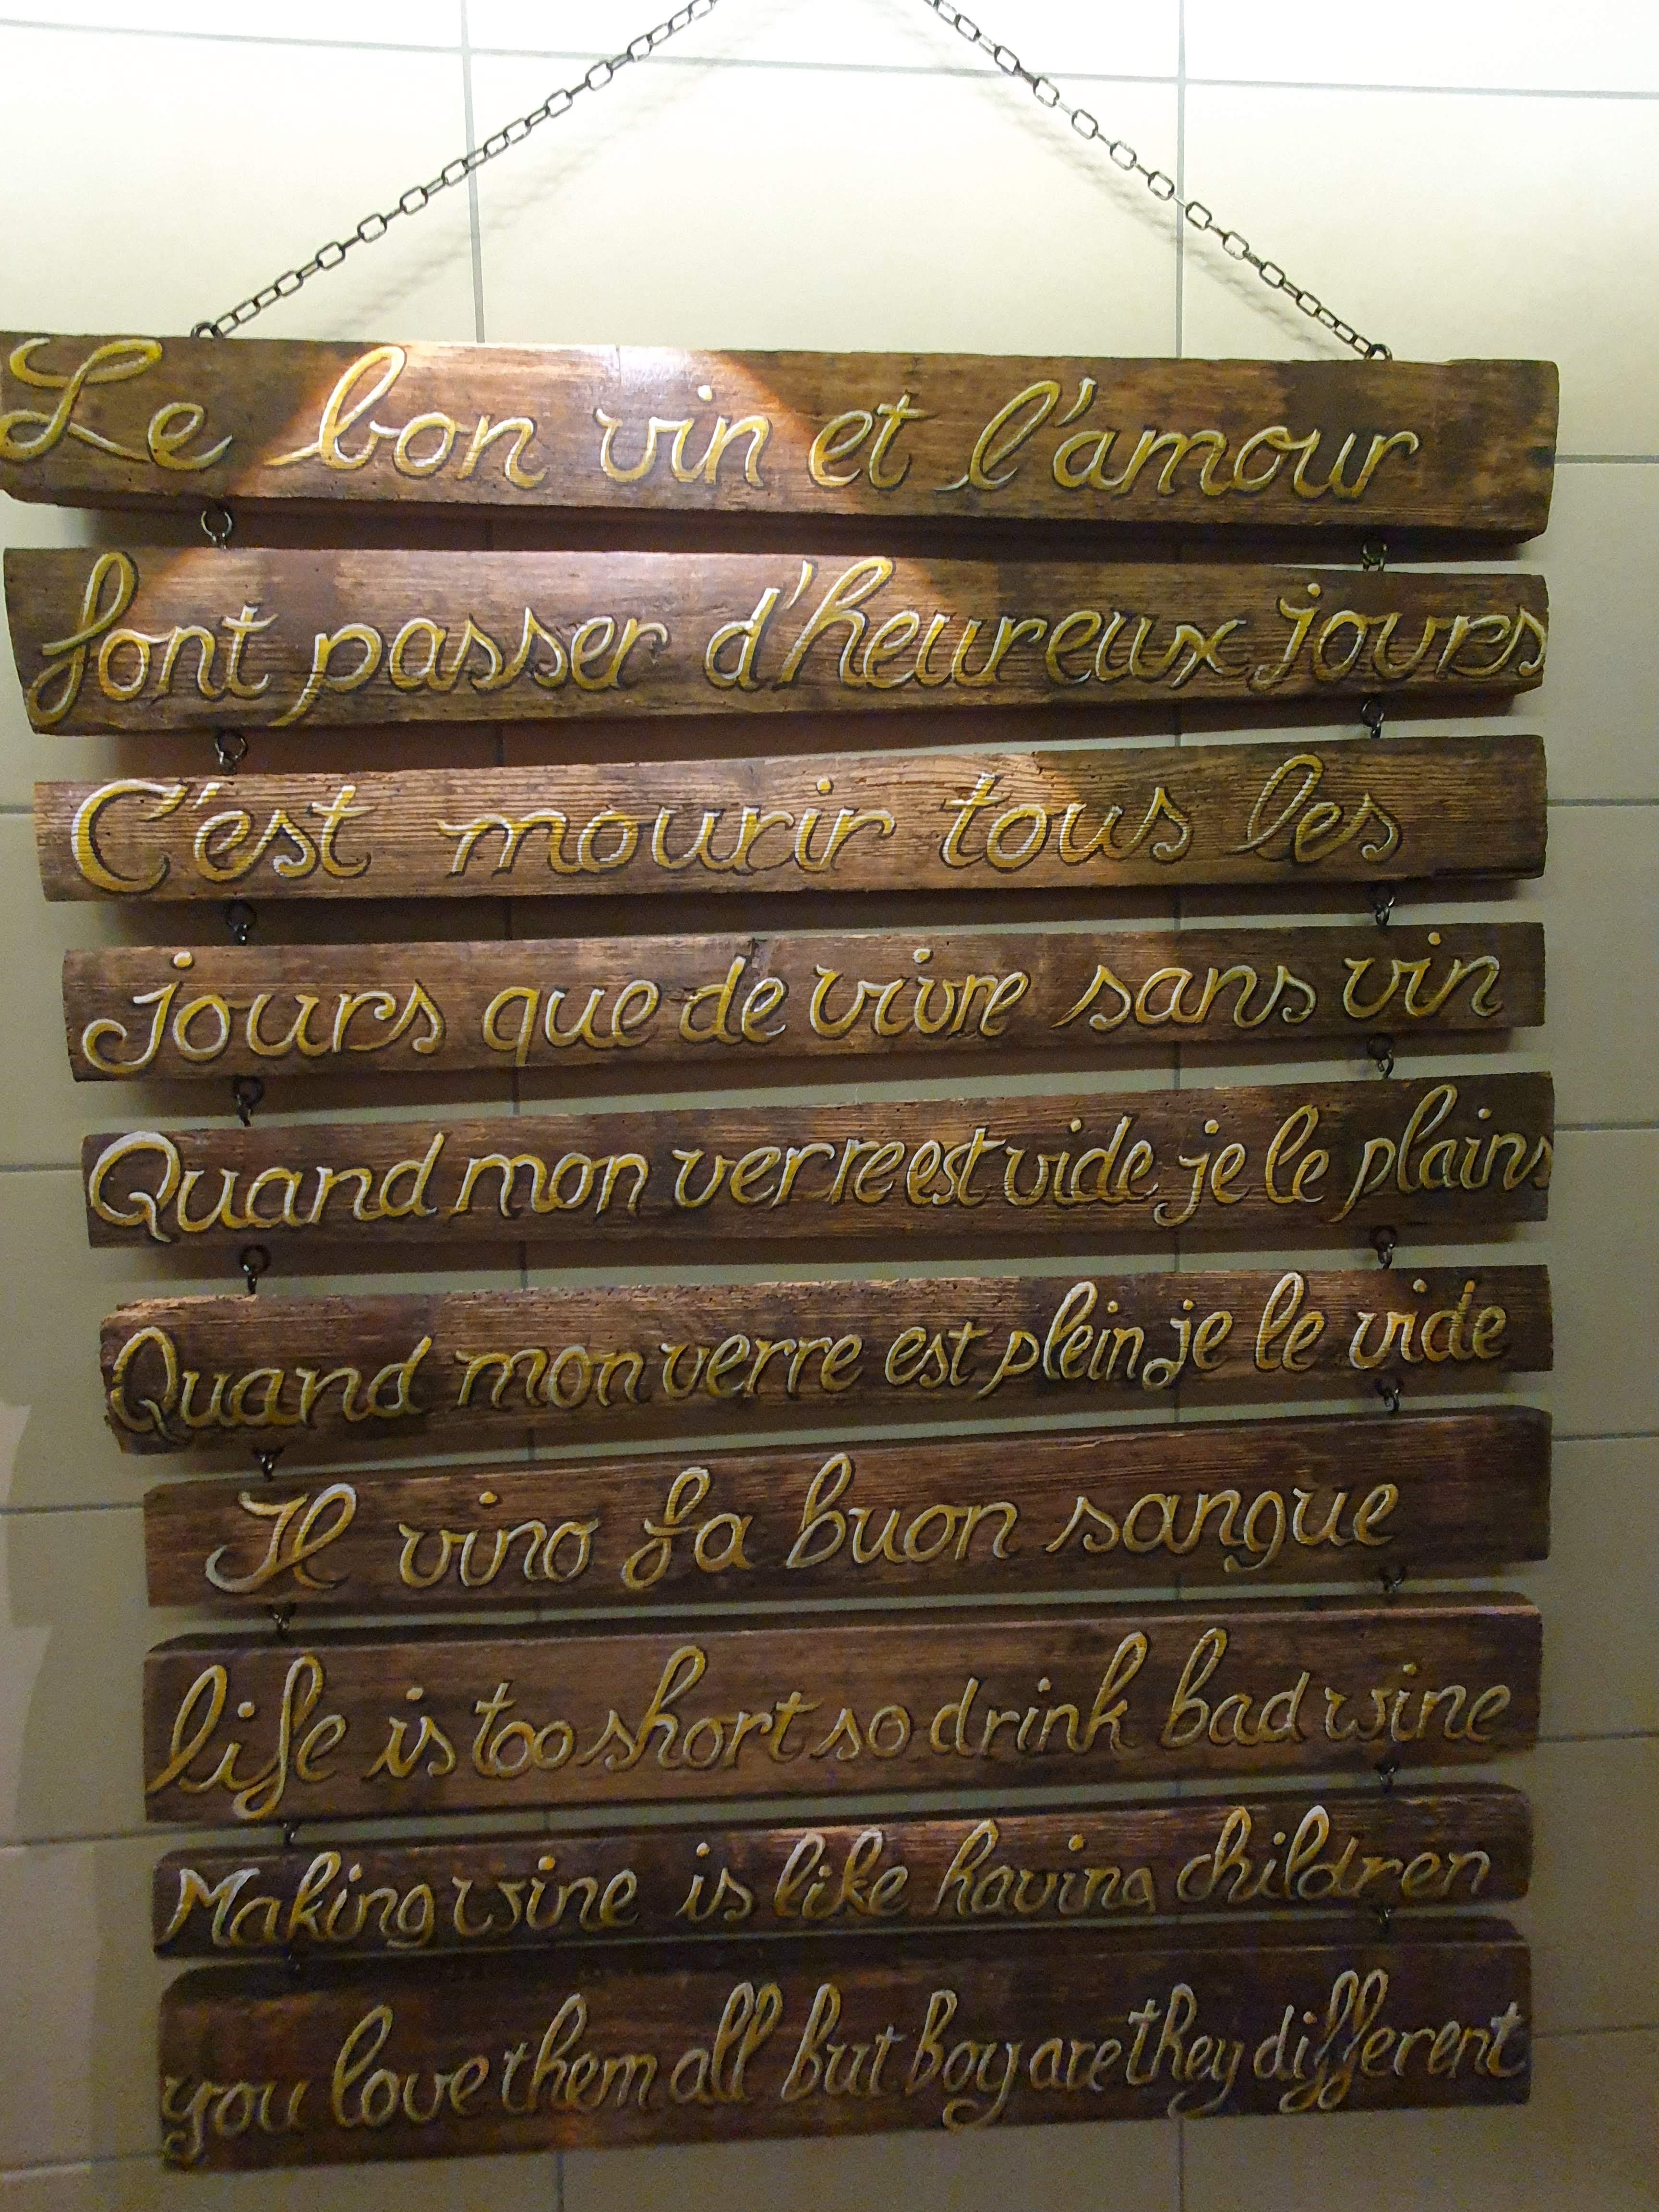 Le bon vin et l'amour
font passer d'heureux jours
C'est mourir tous les
jours que de vivre sans vin
Quand mon verre est vide je le plains
Quand mon verre est plein je le vide
Il vino fa buon sangue
life is too short so drink bad wine
Making wine is like having children
you love them all but boy are they different